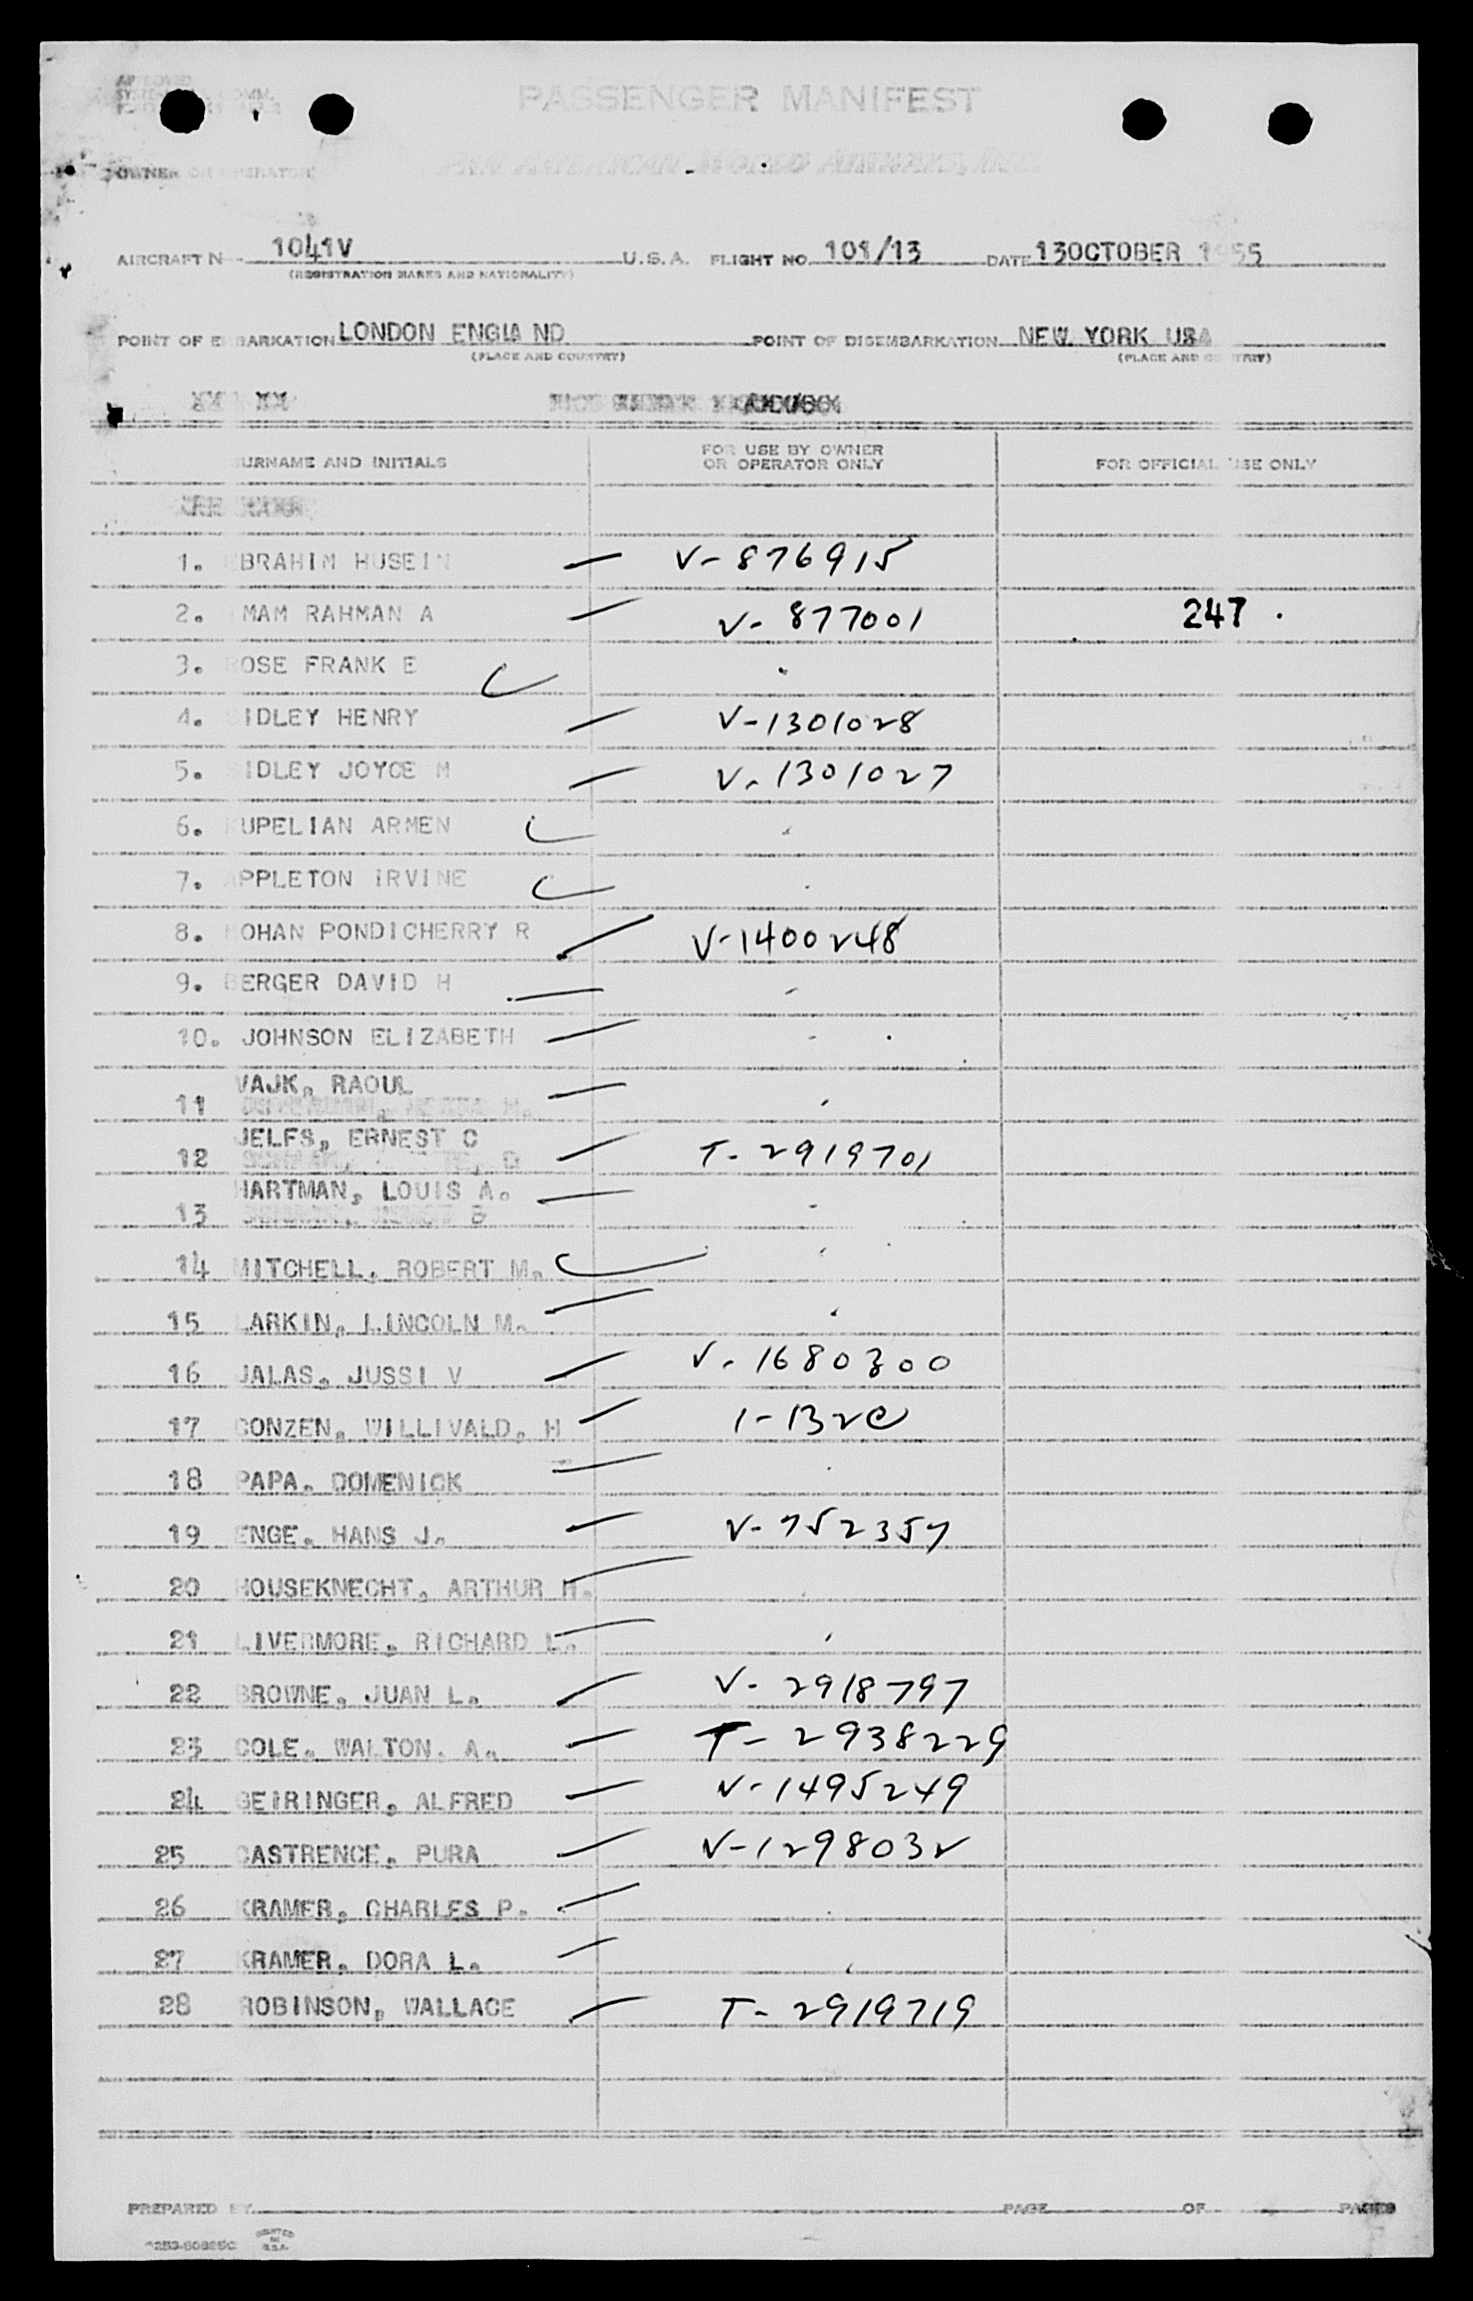 PASSENGER MANIFEST
OWNER OR OPERATOR PAN AMERICAN WORLD AIRWAYS, INC.
AIRCRAFT N 1041V U.S.A. FLIGHT NO. 101/13 DATE 13OCTOBER 1955
(REGISTRATION MARKS AND NATIONALITY)
POINT OF EMBARKATION LONDON ENGLAND POINT OF DISEMBARKATION NEW YORK USA
(PLACE AND COUNTRY) (PLACE AND COUNTRY)
SURNAME AND INITIALS FOR USE BY OWNER OR OPERATOR ONLY FOR OFFICIAL USE ONLY
1. EBRAHIM HUSEIN V-876915
2. IMAM RAHMAN A V-877001 247
3. ROSE FRANK E
4. IDLEY HENRY V-1301028
5. IDLEY JOYCE M V-1301027
6. KUPELIAN ARMEN
7. APPLETON IRVINE
8. MOHAN PONDICHERRY R V-1400248
9. BERGER DAVID H
10. JOHNSON ELIZABETH
11 VAJK, RAOUL
12 JELFS, ERNEST C T-2919701
13 HARTMAN, LOUIS A.
14 MITCHELL, ROBERT M.
15 LARKIN, LINCOLN M.
16 JALAS, JUSSI V V-1680300
17 CONZEN, WILLIVALD, H 1-132C
18 PAPA, DOMENICK
19 ENGE, HANS J. V-752357
20 HOUSEKNECHT, ARTHUR H.
21 LIVERMORE, RICHARD L.
22 BROWNE, JUAN L. V-2918797
23 COLE, WALTON. A. T-2938229
24 GEIRINGER, ALFRED V-1495249
25 CASTRENCE, PURA V-1298032
26 KRAMER, CHARLES P.
27 KRAMER, DORA L.
28 ROBINSON, WALLACE T-2919719
PREPARED BY PAGE OF PAGES
PRINTED IN U.S.A.